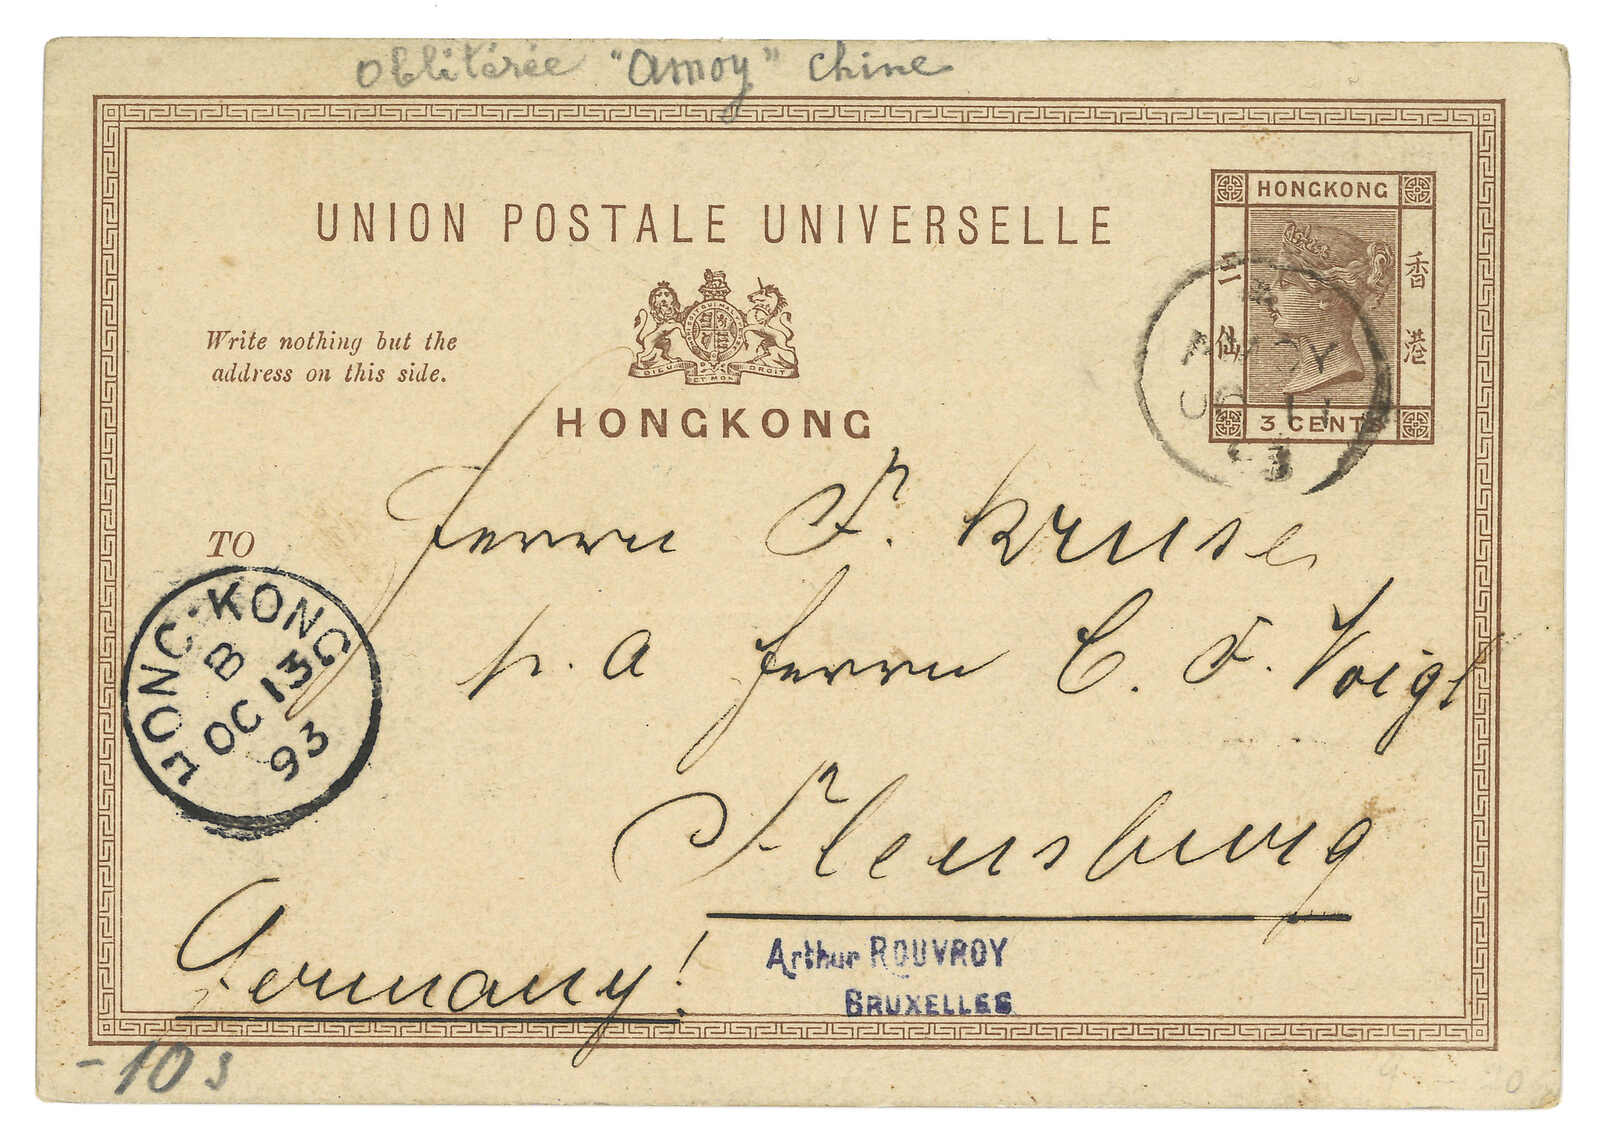 Oblitérée "Amoy" Chine
UNION POSTALE UNIVERSELLE
HONGKONG
香港
三仙
3 CENTS
AMOY
OC 11
93
Write nothing but the
address on this side.
DIEU ET MON DROIT
HONGKONG
TO
Herrn F. Kruse
p. a Herrn C. F. Voigt
Flensburg
Germany!
HONG-KONG
B
OC 13
93
Arthur ROUVROY
BRUXELLES
-10s